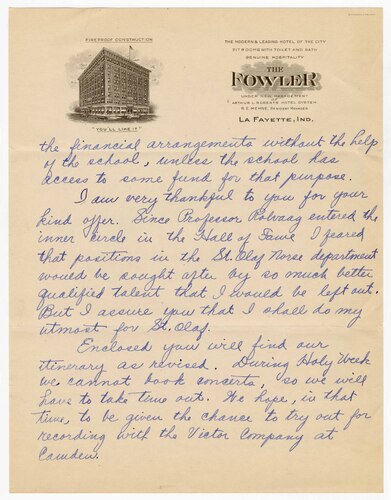 FIREPROOF CONSTRUCTION
"YOU'LL LIKE IT"
THE MODERN & LEADING HOTEL OF THE CITY
FIT ROOMS WITH TOILET AND BATH
GENUINE HOSPITALITY
THE
FOWLER
UNDER NEW MANAGEMENT
ARTHUR L. ROBERTS HOTEL SYSTEM
R.E. MEHNE, RESIDENT MANAGER
LA FAYETTE, IND.
the financial arrangements without the help
of the school, unless the school has
access to some fund for that purpose.
I am very thankful to you for your
kind offer. Since Professor Rolvaag entered the
inner circle in the Hall of Fame I feared
that positions in the St. Olaf Norse department
would be sought after by so much better
qualified talent that I would be left out.
But I assure you that I shall do my
utmost for St. Olaf.
Enclosed you will find our
itinerary as revised. During Holy Week
we cannot book concerts, so we will
have to take time out. We hope, in that
time, to be given the chance to try out for
recording with the Victor Company at
Camden.